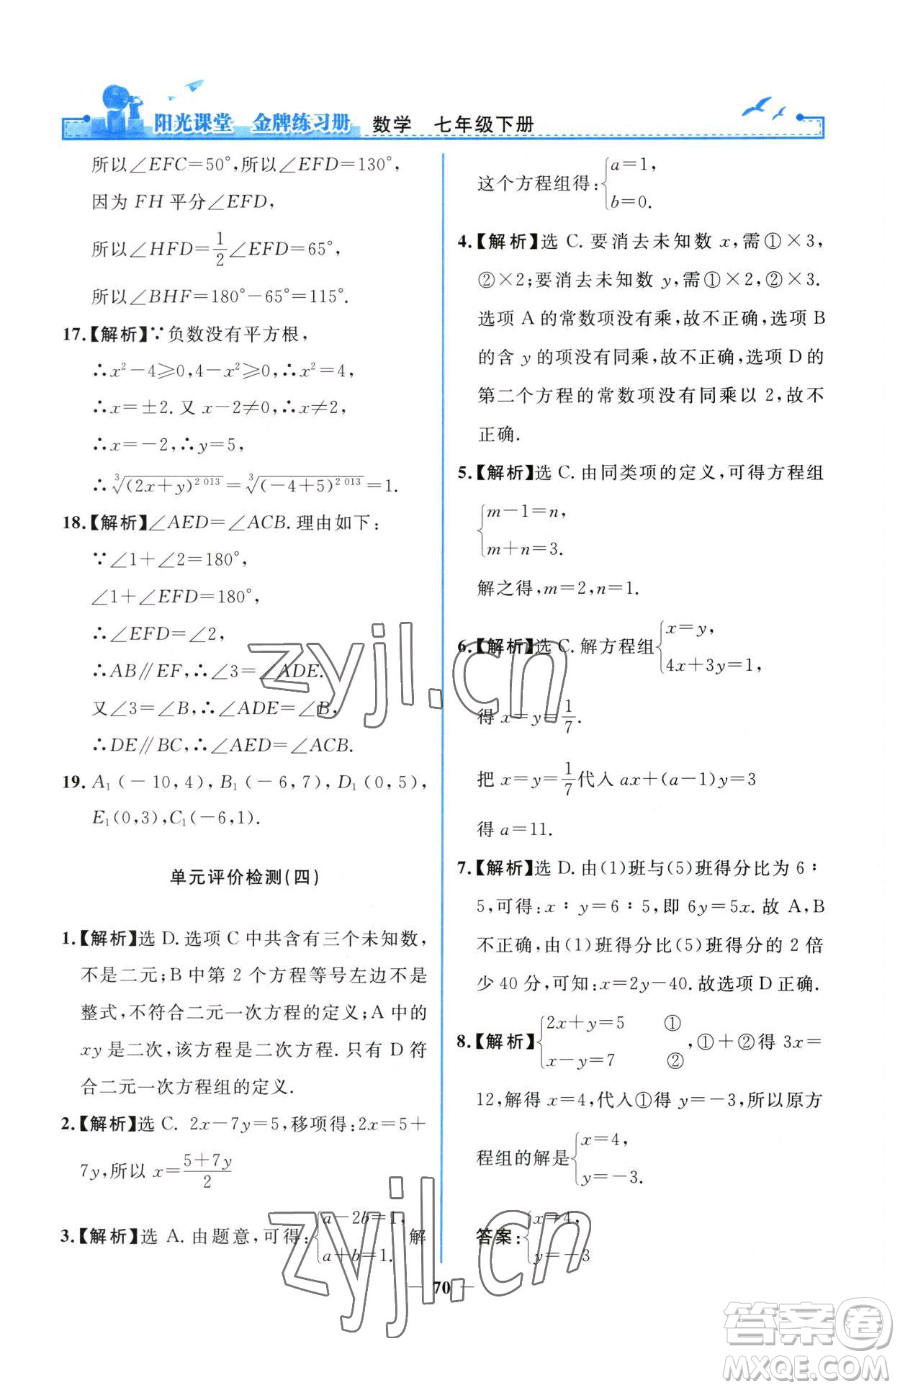 阳光课堂 金牌练习册 数学 七年级下册
所以∠EFC=50°,所以∠EFD=130°.
因为 FH 平分∠EFD,
所以∠HFD=\frac{1}{2}∠EFD=65°.
所以∠BHF=180°-65°=115°.
17.【解析】∵负数没有平方根,
∴x²-4≥0,4-x²≥0,∴x²=4,
∴x=±2.又 x-2≠0,∴x≠2,
∴x=-2,∴y=5,
∴\sqrt[3]{(2x+y)^{2 013}}=\sqrt[3]{(-4+5)^{2 013}}=1.
18.【解析】∠AED=∠ACB.理由如下:
∵∠1+∠2=180°,
∠1+∠EFD=180°,
∴∠EFD=∠2,
∴AB∥EF,∴∠3=∠ADE.
又∠3=∠B,∴∠ADE=∠B,
∴DE∥BC,∴∠AED=∠ACB.
19. A₁(-10,4),B₁(-6,7),D₁(0,5),
E₁(0,3),C₁(-6,1).
单元评价检测(四)
1.【解析】选 D.选项 C 中共含有三个未知数,
不是二元;B 中第 2 个方程等号左边不是
整式,不符合二元一次方程的定义;A 中的
xy 是二次,该方程是二次方程.只有 D 符
合二元一次方程组的定义.
2.【解析】选 C. 2x-7y=5,移项得:2x=5+
7y,所以 x=\frac{5+7y}{2}
3.【解析】选 A.由题意,可得:{a-2b=1, a+b=1. 解
这个方程组得:{a=1, b=0.
4.【解析】选 C.要消去未知数 x,需①×3,
②×2;要消去未知数 y,需①×2,②×3.
选项 A 的常数项没有乘,故不正确,选项 B
的含 y 的项没有同乘,故不正确,选项 D 的
第二个方程的常数项没有同乘以 2,故不
正确.
5.【解析】选 C.由同类项的定义,可得方程组
{m-1=n,
m+n=3.
解之得,m=2,n=1.
6.【解析】选 C.解方程组{x=y, 4x+3y=1,
得 x=y=\frac{1}{7}.
把 x=y=\frac{1}{7}代入 ax+(a-1)y=3
得 a=11.
7.【解析】选 D.由(1)班与(5)班得分比为 6∶
5,可得:x∶y=6∶5,即 6y=5x.故 A、B
不正确,由(1)班得分比(5)班得分的 2 倍
少 40 分,可知:x=2y-40.故选项 D 正确.
8.【解析】{2x+y=5 ① x-y=7 ②,①+②得 3x=
12,解得 x=4,代入①得 y=-3,所以原方
程组的解是{x=4, y=-3.
答案:{x=4, y=-3
70
zyjl.cn
zyjl.cn
答案圈
MXQE.COM